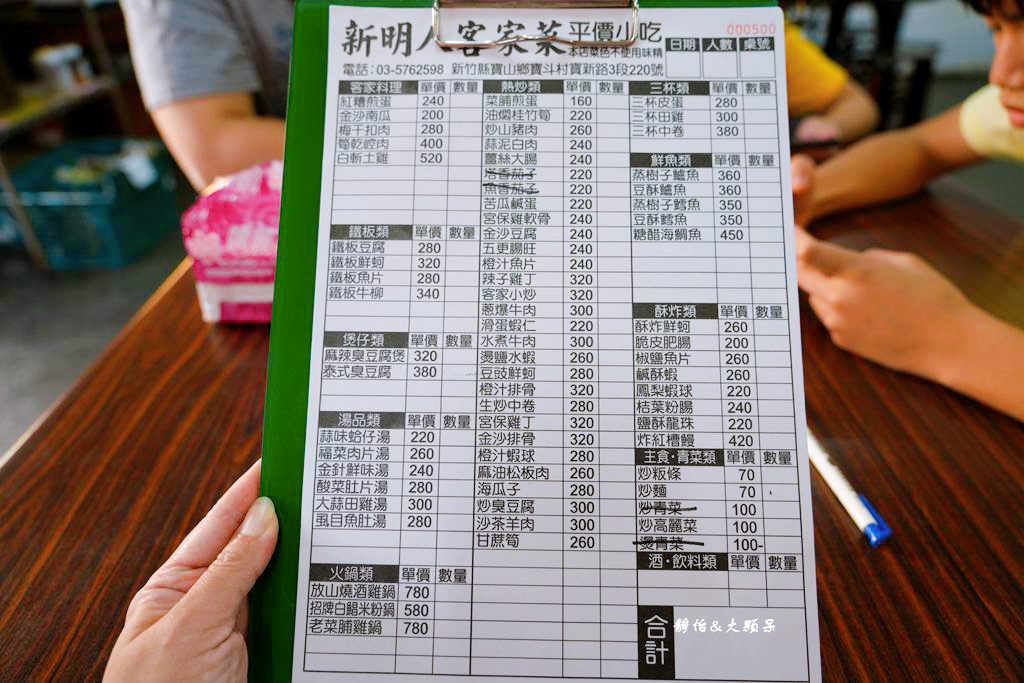 新明人客家菜 平價小吃
本店菜色不使用味精
000500
日期 人數 桌號
電話：03-5762598 新竹縣寶山鄉寶斗村寶新路3段220號
客家料理 單價 數量
紅糟煎蛋 240
金沙南瓜 200
梅干扣肉 280
筍乾崆肉 400
白斬土雞 520
鐵板類 單價 數量
鐵板豆腐 280
鐵板鮮蚵 320
鐵板魚片 280
鐵板牛柳 340
煲仔類 單價 數量
麻辣臭豆腐煲 320
泰式臭豆腐 380
湯品類 單價 數量
蒜味蛤仔湯 220
福菜肉片湯 260
金針鮮味湯 240
酸菜肚片湯 280
大蒜田雞湯 300
虱目魚肚湯 280
火鍋類 單價 數量
放山燒酒雞鍋 780
招牌白鯧米粉鍋 580
老菜脯雞鍋 780
熱炒類 單價 數量
菜脯煎蛋 160
油燜桂竹筍 220
炒山豬肉 260
蒜泥白肉 240
薑絲大腸 240
塔香茄子 220
魚香茄子 220
苦瓜鹹蛋 220
宮保雞軟骨 240
金沙豆腐 240
五更腸旺 240
橙汁魚片 240
辣子雞丁 320
客家小炒 320
蔥爆牛肉 300
滑蛋蝦仁 220
水煮牛肉 300
燙鹽水蝦 260
豆豉鮮蚵 280
橙汁排骨 320
生炒中卷 280
宮保雞丁 320
金沙排骨 320
橙汁蝦球 280
麻油松板肉 260
海瓜子 280
炒臭豆腐 300
沙茶羊肉 300
甘蔗筍 260
三杯類 單價 數量
三杯皮蛋 280
三杯田雞 300
三杯中卷 380
鮮魚類 單價 數量
蒸樹子鱸魚 360
豆酥鱸魚 360
蒸樹子鱈魚 350
豆酥鱈魚 350
糖醋海鯛魚 450
酥炸類 單價 數量
酥炸鮮蚵 260
脆皮肥腸 200
椒鹽魚片 260
鹹酥蝦 260
鳳梨蝦球 220
桔葉粉腸 240
鹽酥龍珠 220
炸紅槽鰻 420
主食·青菜類 單價 數量
炒粄條 70
炒麵 70
炒青菜 100
炒高麗菜 100
燙青菜 100-
酒·飲料類 單價 數量
合計
靜怡&大顆呆